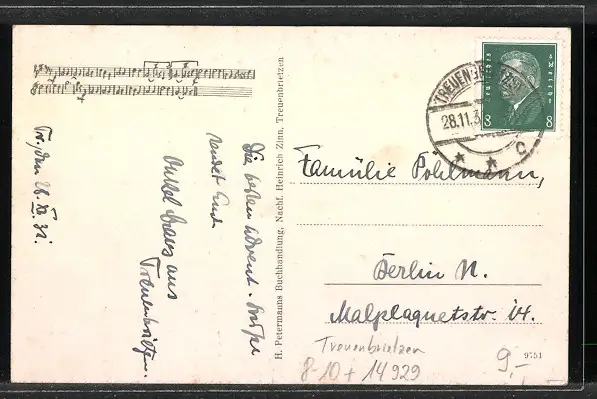 Tr., den 28. XI. 31.
Die besten Advent-Grüße
sendet Euch
Onkel Franz aus
Treuenbrietzen.
H. Petermanns Buchhandlung, Nachf. Heinrich Zinn, Treuenbrietzen
TREUENBRIETZEN
28.11.3
C
Deutsches Reich
8 8
Familie Pohlmann,
Berlin N.
Malplaquetstr. 14.
Treuenbrietzen
8-10+ 14929
9,-
9751